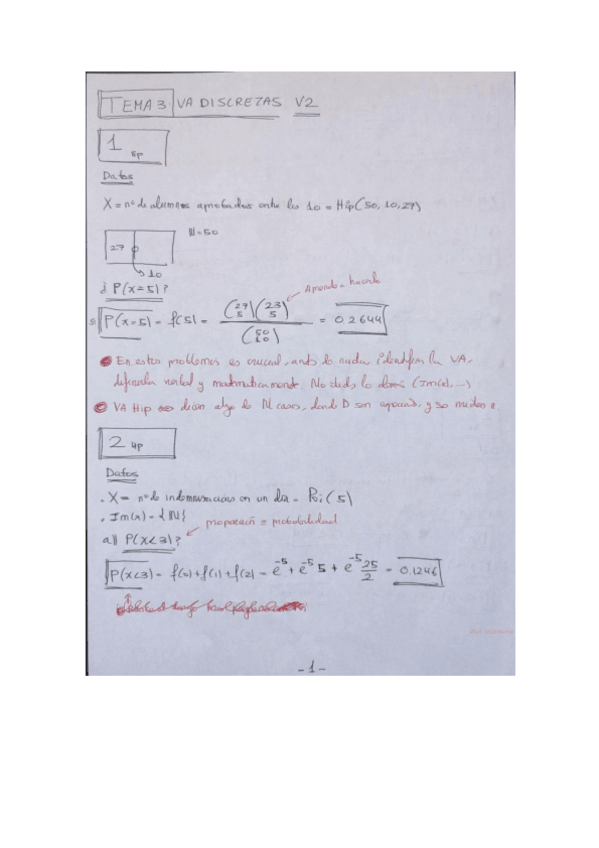 TEMA 3 VA DISCRETAS V2
1 5p
Datos
X = nº de alumnos aprobados entre los 10 = Hip(50, 10, 27)
27 N=50
10
¿ P(X=5)?
P(X=5) = f(5) = (27 5)(23 5) / (50 10) = 0.2644
En estos problemas es crucial, antes de nada, identificar la VA,
definirla verbal y matemáticamente. No olvides lo demás (Im(x), ...)
VA Hip dicen algo de N casos, donde D son
2 4p
Datos
. X = nº de indemnizaciones en un día = Poi(5)
. Im(x) = {IN}
proporción = probabilidad
a)) P(X<3)?
P(X<3) = f(0) + f(1) + f(2) = e^-5 + e^-5 5 + e^-5 25/2 = 0.1246
-1-